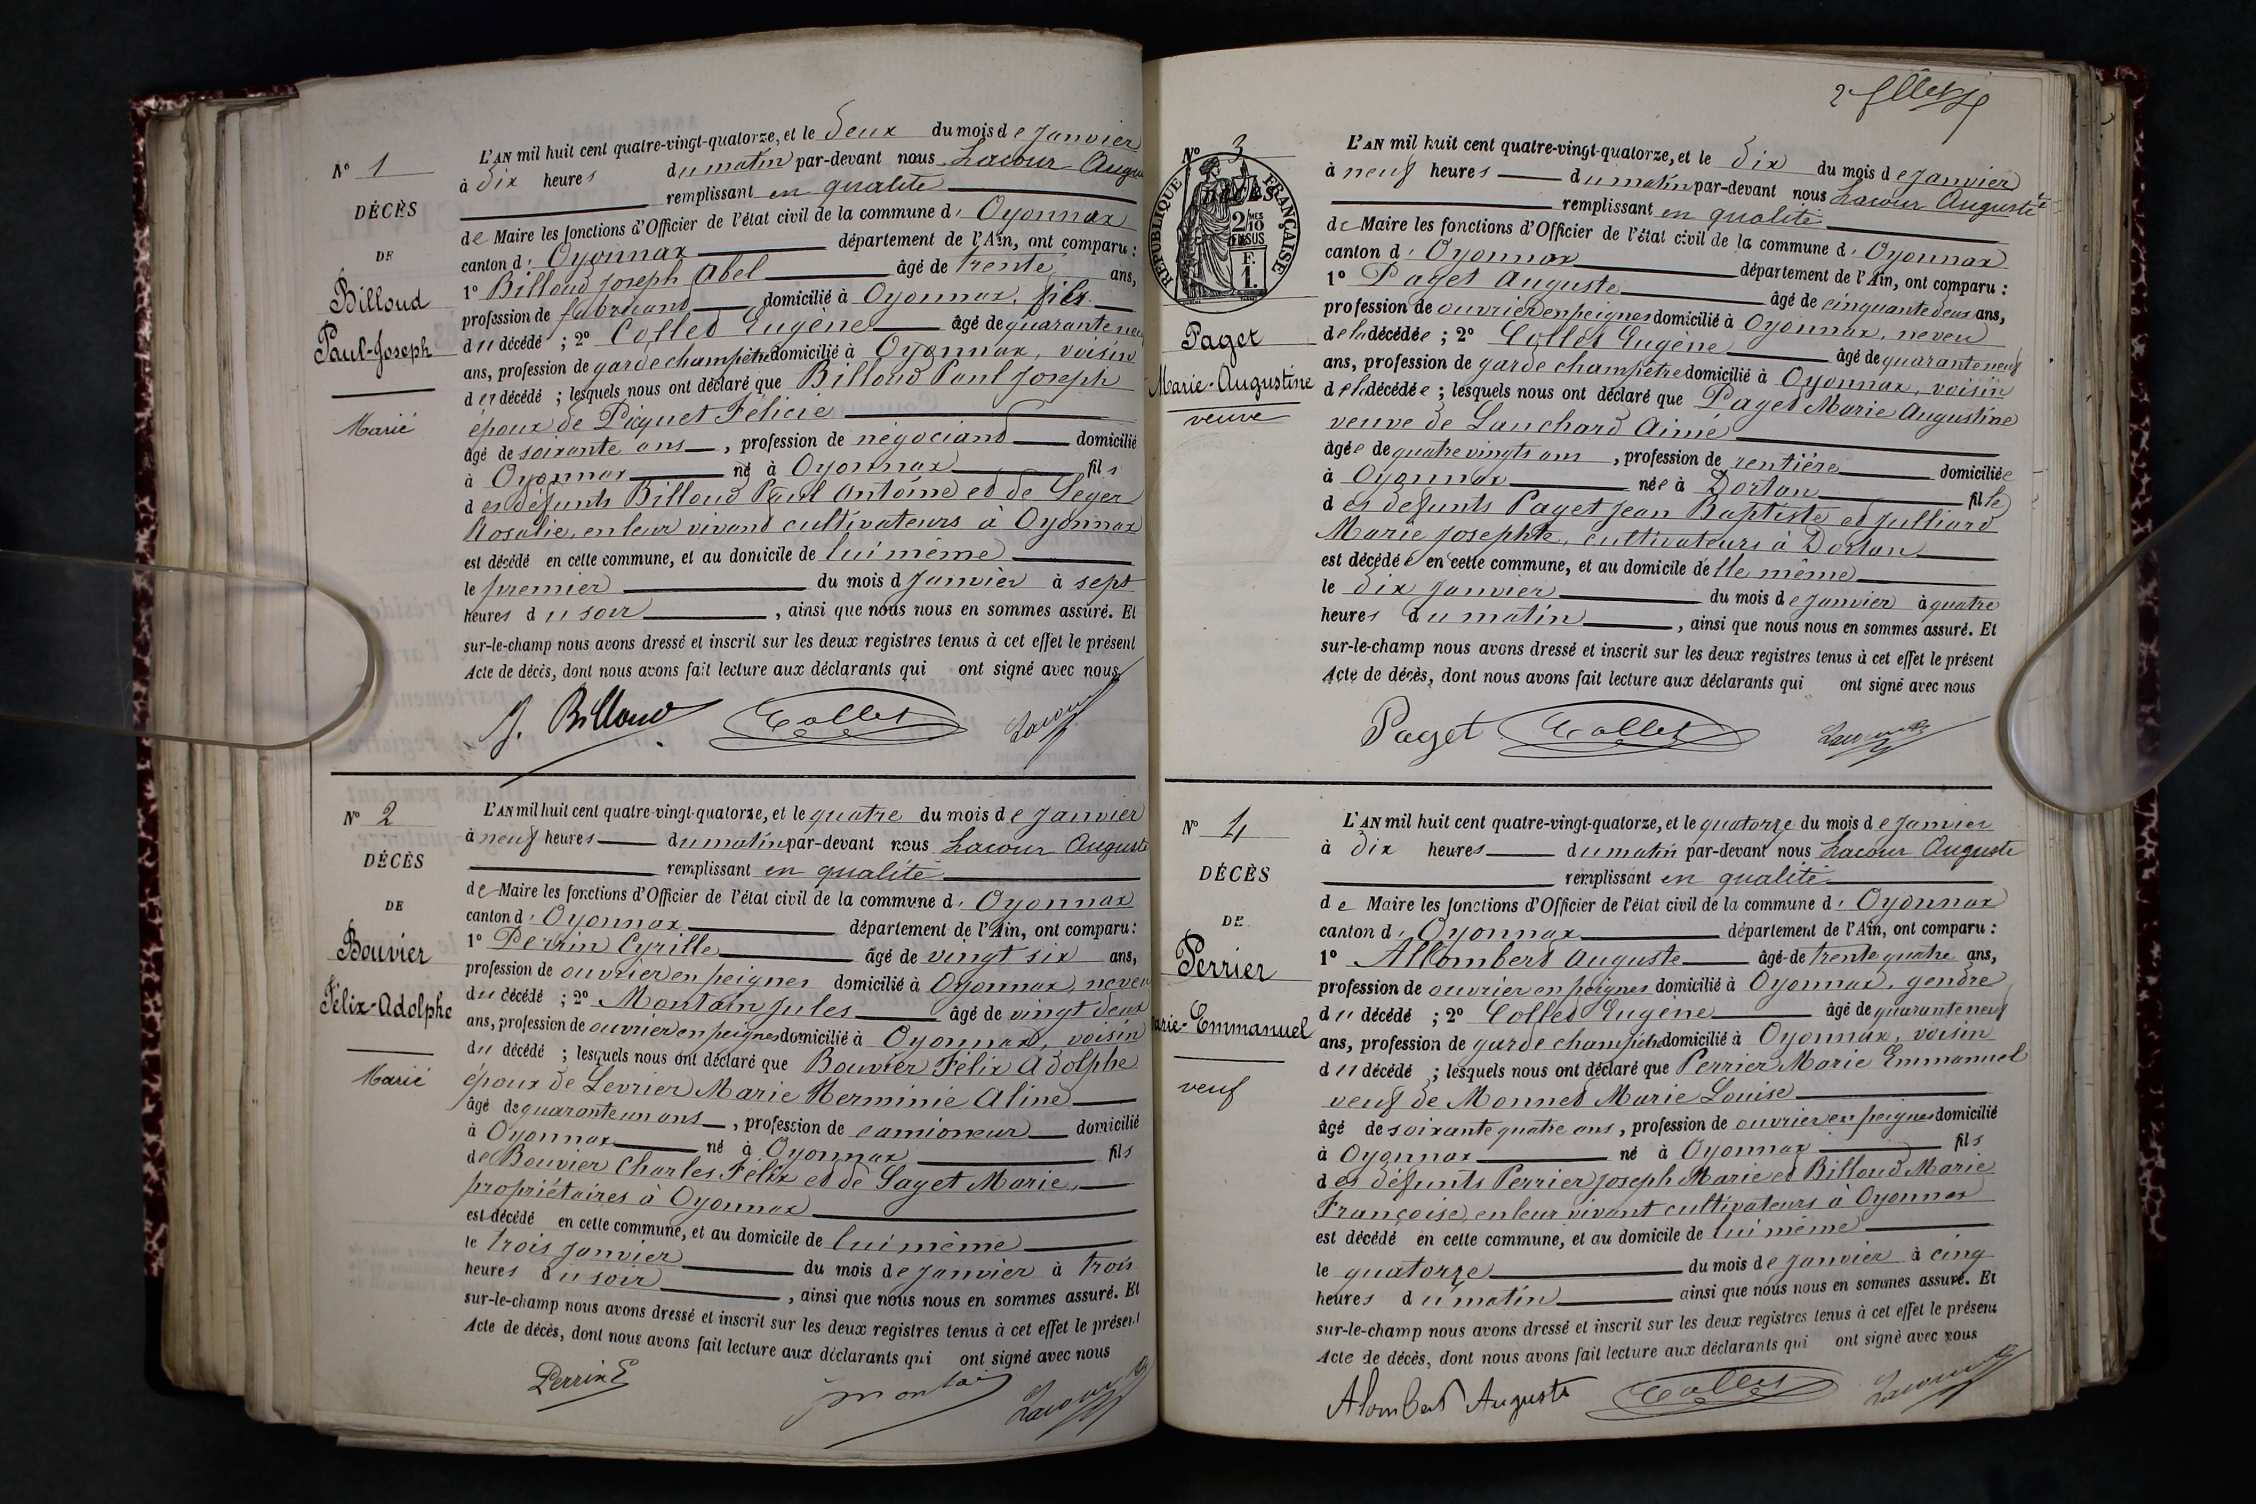 N° 1
DÉCÈS
DE
Billoud
Paul-Joseph
Marié
L'AN mil huit cent quatre-vingt-quatorze, et le deux du mois de janvier
à dix heures du matin par-devant nous Lacour Auguste
remplissant en qualité
de Maire les fonctions d'Officier de l'état civil de la commune d' Oyonnax
canton d' Oyonnax département de l'Ain, ont comparu :
1° Billoud Joseph Abel âgé de trente ans,
profession de fabricant domicilié à Oyonnax, fils
du décédé ; 2° Collet Eugène âgé de quarante neuf
ans, profession de garde champêtre domicilié à Oyonnax, voisin
du décédé ; lesquels nous ont déclaré que Billoud Paul Joseph
époux de Picquet Félicie
âgé de soixante ans, profession de négociant domicilié
à Oyonnax né à Oyonnax fils
des défunts Billoud Paul Antoine et de Leger
Rosalie, en leur vivant cultivateurs à Oyonnax
est décédé en cette commune, et au domicile de lui même
le premier du mois d janvier à sept
heures du soir, ainsi que nous nous en sommes assuré. Et
sur-le-champ nous avons dressé et inscrit sur les deux registres tenus à cet effet le présent
Acte de décès, dont nous avons fait lecture aux déclarants qui ont signé avec nous
J. Billoud Collet Lacour
N° 2
DÉCÈS
DE
Bouvier
Félix-Adolphe
Marié
L'AN mil huit cent quatre-vingt-quatorze, et le quatre du mois de janvier
à neuf heures du matin par-devant nous Lacour Auguste
remplissant en qualité
de Maire les fonctions d'Officier de l'état civil de la commune d' Oyonnax
canton d' Oyonnax département de l'Ain, ont comparu :
1° Perrin Cyrille âgé de vingt six ans,
profession de ouvrier en peignes domicilié à Oyonnax, neveu
du décédé ; 2° Montain Jules âgé de vingt deux
ans, profession de ouvrier en peignes domicilié à Oyonnax, voisin
du décédé ; lesquels nous ont déclaré que Bouvier Félix Adolphe
époux de Levrier Marie Herminie Aline
âgé de quarante un ans, profession de camioneur domicilié
à Oyonnax né à Oyonnax fils
de Bouvier Charles Félix et de Sayet Marie,
propriétaires à Oyonnax
est décédé en cette commune, et au domicile de lui même
le trois janvier du mois de janvier à trois
heures du soir, ainsi que nous nous en sommes assuré. Et
sur-le-champ nous avons dressé et inscrit sur les deux registres tenus à cet effet le présent
Acte de décès, dont nous avons fait lecture aux déclarants qui ont signé avec nous
Perrin C Montain Lacour
2e
N° 3
RÉPUBLIQUE FRANÇAISE
2/10
EN SUS
F.
1.
Paget
Marie-Augustine
veuve
L'AN mil huit cent quatre-vingt-quatorze, et le dix du mois de janvier
à neuf heures du matin par-devant nous Lacour Auguste
remplissant en qualité
de Maire les fonctions d'Officier de l'état civil de la commune d' Oyonnax
canton d' Oyonnax département de l'Ain, ont comparu :
1° Paget Auguste âgé de cinquante deux ans,
profession de ouvrier en peignes domicilié à Oyonnax, neveu
de la décédée ; 2° Collet Eugène âgé de quarante neuf
ans, profession de garde champêtre domicilié à Oyonnax, voisin
de la décédée ; lesquels nous ont déclaré que Paget Marie Augustine
veuve de Lanchard Aimé
âgée de quatre vingts ans, profession de rentière domiciliée
à Oyonnax née à Dortan fille
des défunts Paget Jean Baptiste et Julliard
Marie Josephte, cultivateurs à Dortan
est décédée en cette commune, et au domicile delle même
le dix janvier du mois de janvier à quatre
heures du matin, ainsi que nous nous en sommes assuré. Et
sur-le-champ nous avons dressé et inscrit sur les deux registres tenus à cet effet le présent
Acte de décès, dont nous avons fait lecture aux déclarants qui ont signé avec nous
Paget Collet Lacour
N° 4
DÉCÈS
DE
Perrier
arie-Emmanuel
veuf
L'AN mil huit cent quatre-vingt-quatorze, et le quatorze du mois de janvier
à dix heures du matin par-devant nous Lacour Auguste
remplissant en qualité
de Maire les fonctions d'Officier de l'état civil de la commune d' Oyonnax
canton d' Oyonnax département de l'Ain, ont comparu :
1° Allombert Auguste âgé de trente quatre ans,
profession de ouvrier en peignes domicilié à Oyonnax, gendre
du décédé ; 2° Collet Eugène âgé de quarante neuf
ans, profession de garde champêtre domicilié à Oyonnax, voisin
du décédé ; lesquels nous ont déclaré que Perrier Marie Emmanuel
veuf de Monnet Marie Louise
âgé de soixante quatre ans, profession de ouvrier en peignes domicilié
à Oyonnax né à Oyonnax fils
des défunts Perrier Joseph Marie et Billoud Marie
Françoise, en leur vivant cultivateurs à Oyonnax
est décédé en cette commune, et au domicile de lui même
le quatorze du mois de janvier à cinq
heures du matin ainsi que nous nous en sommes assuré. Et
sur-le-champ nous avons dressé et inscrit sur les deux registres tenus à cet effet le présent
Acte de décès, dont nous avons fait lecture aux déclarants qui ont signé avec nous
Alombert Auguste Collet Lacour